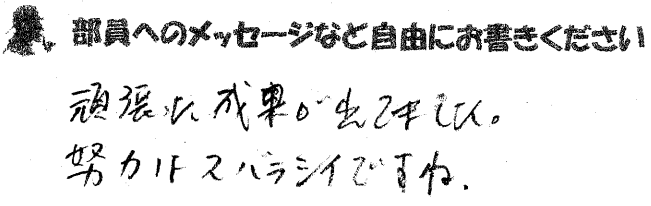 部員へのメッセージなど自由にお書きください
頑張った成果が出てました。
努力ハスバラシイですね。